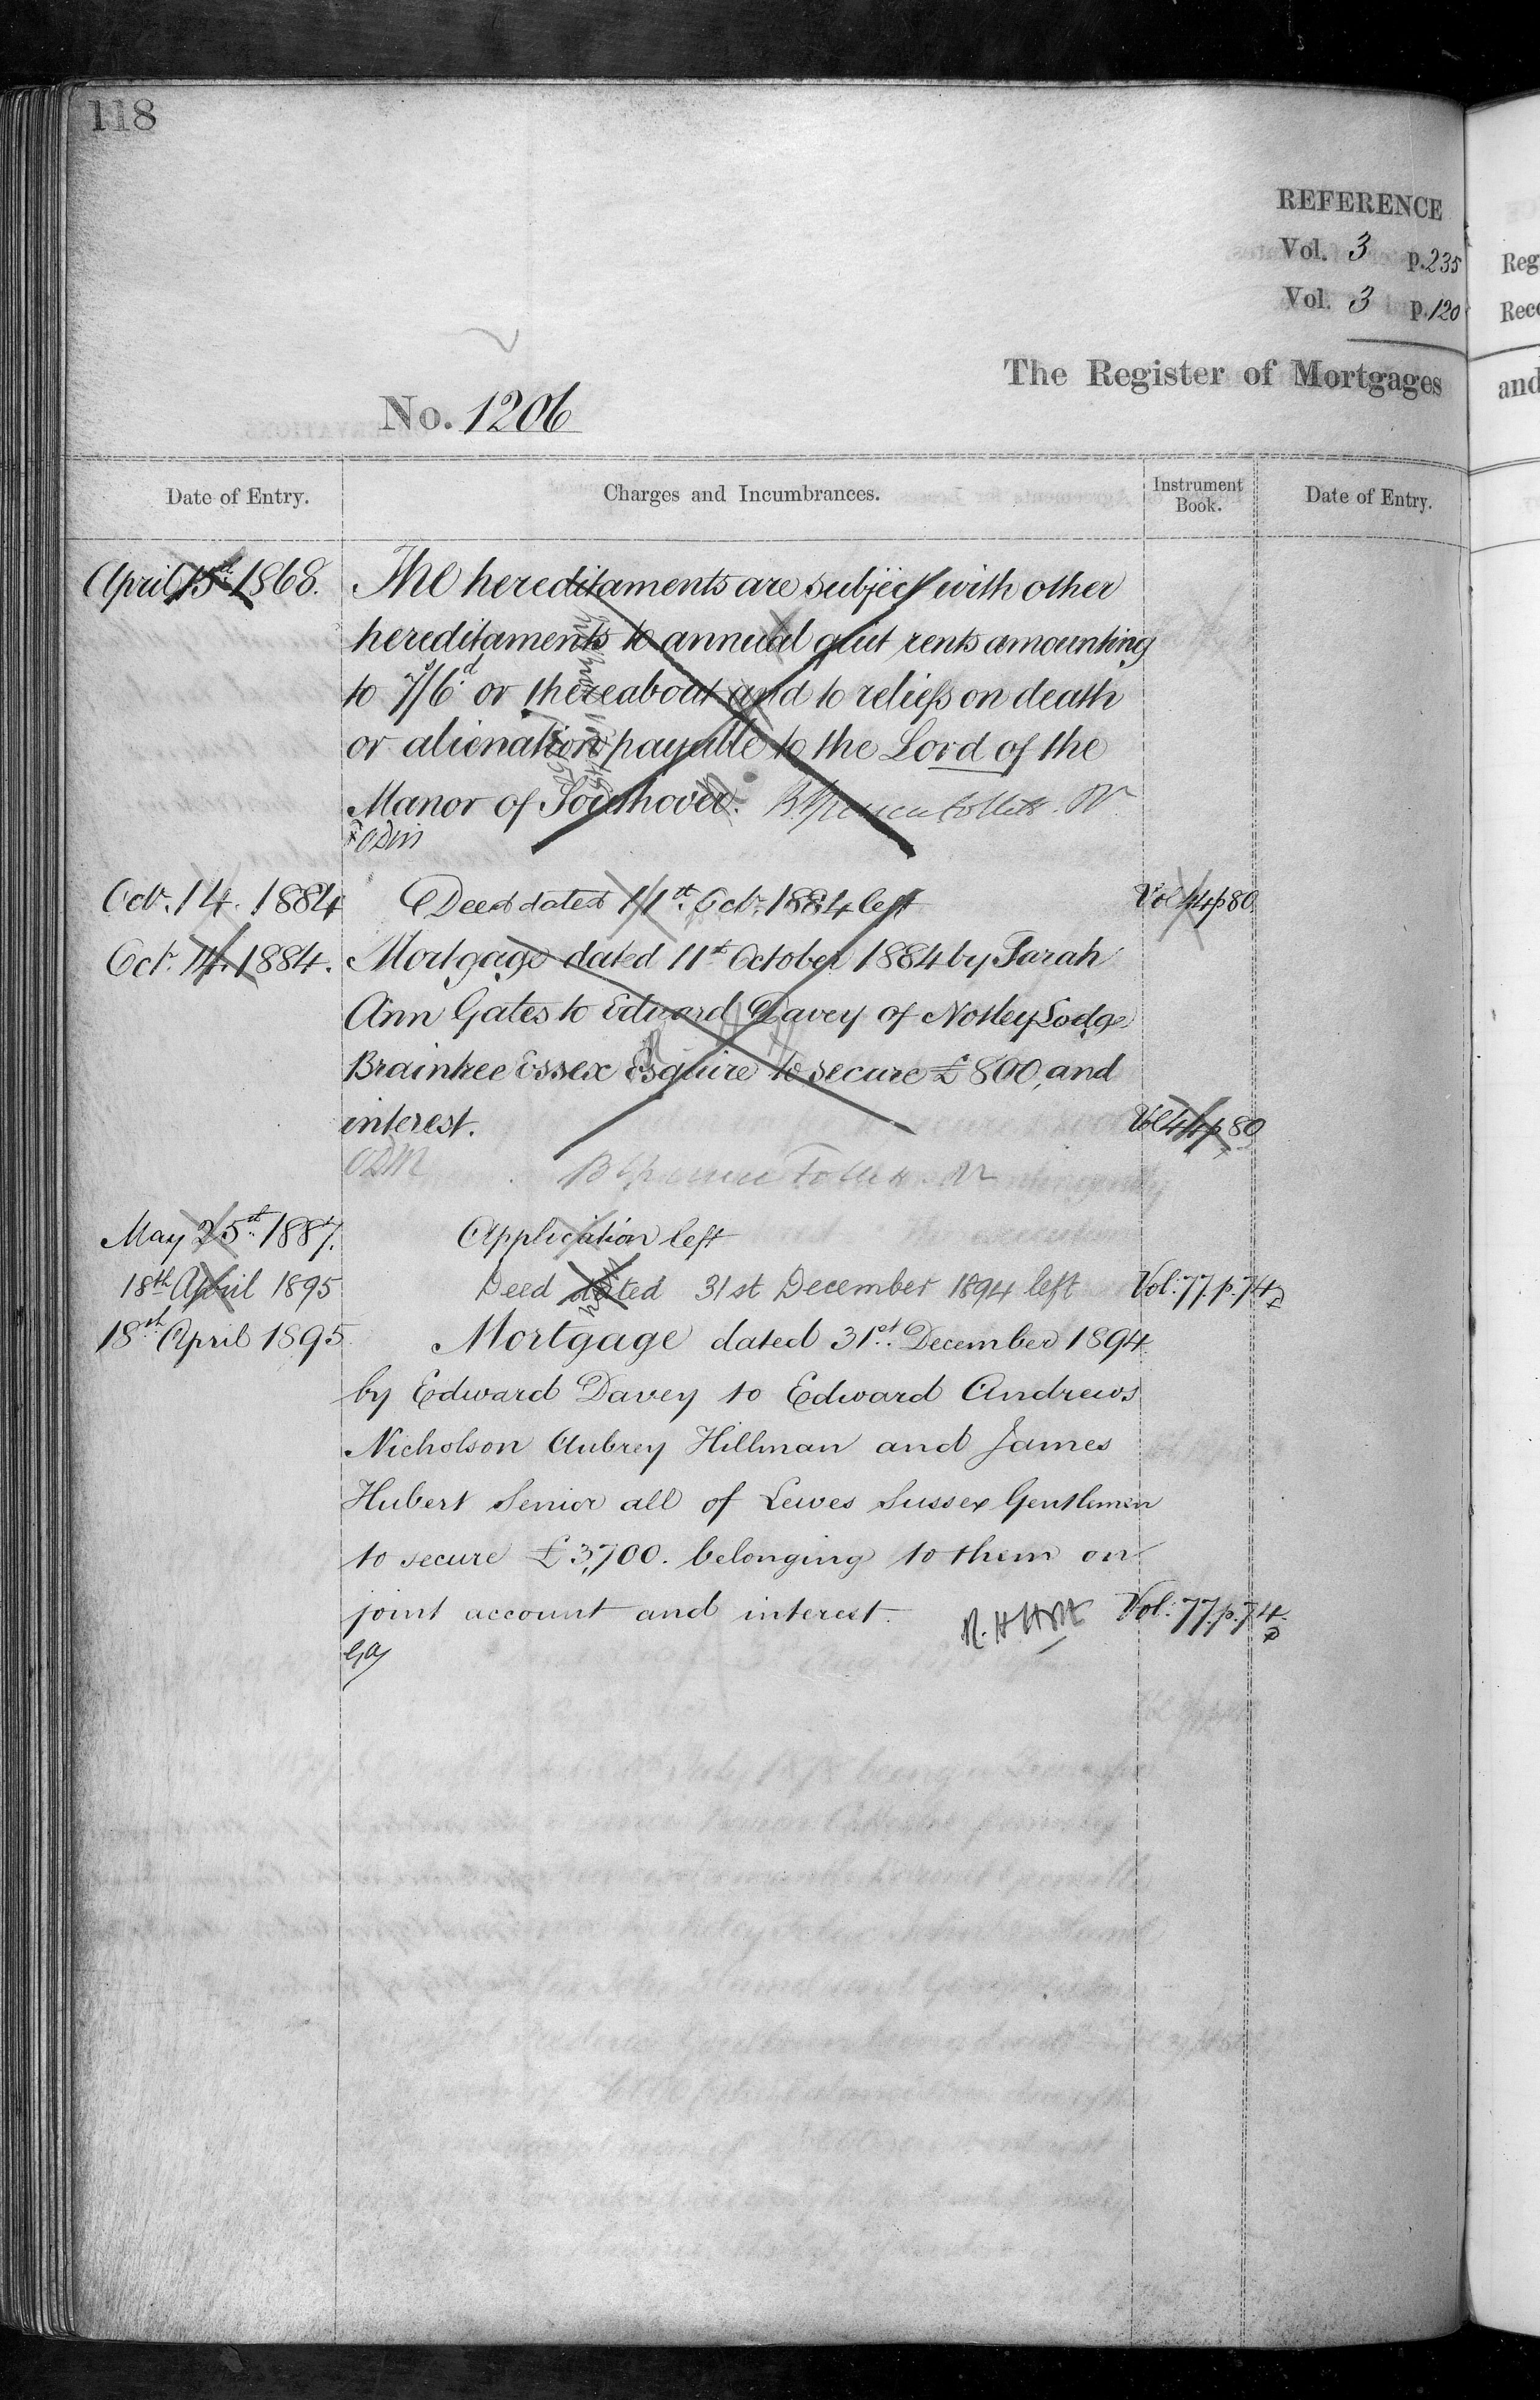 118
REFERENCE
Vol. 3 p. 235
Vol. 3 p. 120
The Register of Mortgages
No. 1206
Date of Entry. Charges and Incumbrances. Instrument Book. Date of Entry.
April 15th 1868. The hereditaments are subject with other
hereditaments to annual quit rents amounting
to 7/6d or thereabout and to reliefs on death
or alienation payable to the Lord of the
Manor of Southover.
Oct. 14. 1884 Deed dated 11th Octr. 1884 left Vol 44 p 80
Oct. 14. 1884. Mortgage dated 11th October 1884 by Sarah
Ann Gates to Edward Davey of Notley Lodge
Braintree Essex Esquire to secure £800, and
interest. Vol 44 p 80
ODM
May 25th 1887. Application left
18th April 1895 Deed dated 31st December 1894 left Vol: 77. p. 74
18th April 1895 Mortgage dated 31st. December 1894
by Edward Davey to Edward Andrews
Nicholson Aubrey Hillman and James
Hubert Senior all of Lewes Sussex Gentlemen
to secure £3,700. belonging to them on
joint account and interest. Vol: 77. p. 74.
Reg
Rec
and